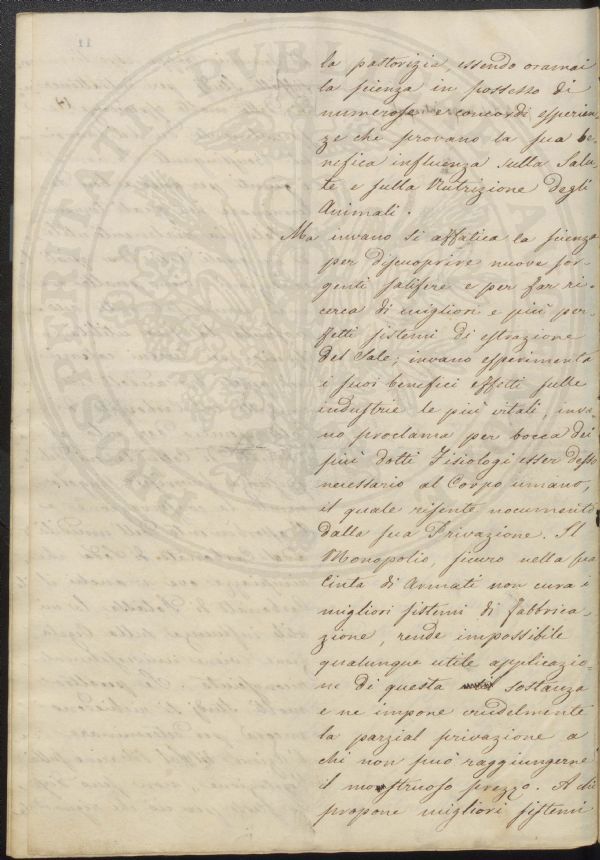 la pastorizia, essendo oramai
la scienza in possesso di
numerose e concordi esperien
ze che provano la sua be-
nefica influenza sulla Salu-
te e sulla Nutrizione degli
Animali.
Ma invano si affatica la scienza
per discuoprire nuove sor-
genti salifere e per far ri-
cerca di migliori e più per-
fetti sistemi di estrazione
del Sale; invano esperimenta
i suoi benefici effetti sulle
industrie le più vitali, inva-
no proclama per bocca dei
più dotti Fisiologi esser desso
necessario al Corpo umano,
il quale risente nocumento
dalla sua Privazione. Il
Monopolio, sicuro nella sua
Cinta di Armati non cura i
migliori sistemi di fabbrica-
zione, rende impossibile
qualunque utile applicazio-
ne di questa sostanza
e ne impone crudelmente
la parzial privazione a
chi non può raggiungerne
il mostruoso prezzo. A chi
propone migliori sistemi